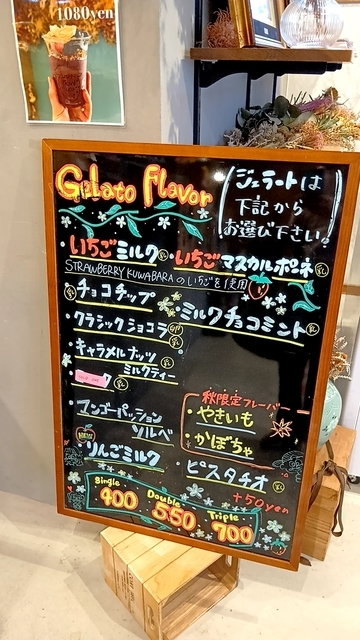 1080yen
Gelato Flavor
ジェラートは
下記から
お選び下さい!
・いちごミルク乳・いちごマスカルポーネ乳
STRAWBERRY KUWABARAのいちごを使用
乳チョコチップ
・ミルクチョコミント乳
・クラシックショコラ
・キャラメルナッツ乳
ミルクティー
乳
・マンゴーパッション
ソルベ
・りんごミルク乳
秋限定フレーバー
・やきいも
・かぼちゃ
・ピスタチオ乳
+50yen
Single
400
Double
550
Triple
700